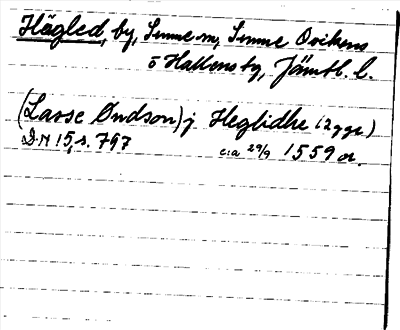 Hägled, by, Sunne sn, Sunne Ovikens
o Hallens tg, Jämtl. l.
(Lasse Øndson) j Heglidhe (2 ggr)
D N 15, s. 797 c:a 29/9 1559 or.